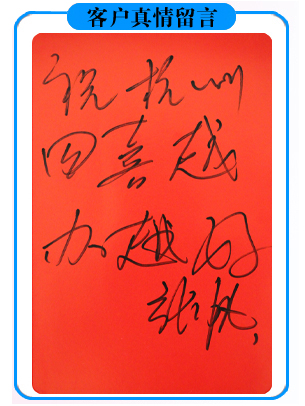 客户真情留言
祝杭州
四喜越
办越好
张帆